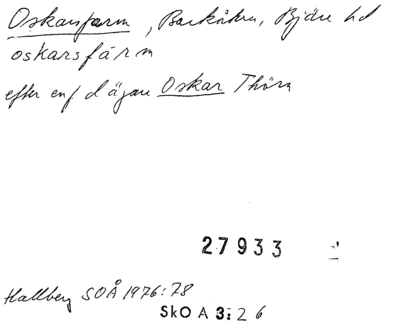 Oskarsfarm, Barkåkra, Bjäre hd
oskarsfárm
efter en f d ägare Oskar Thörn
27933
Hallberg SOÅ 1976:78
SkO A 3:26